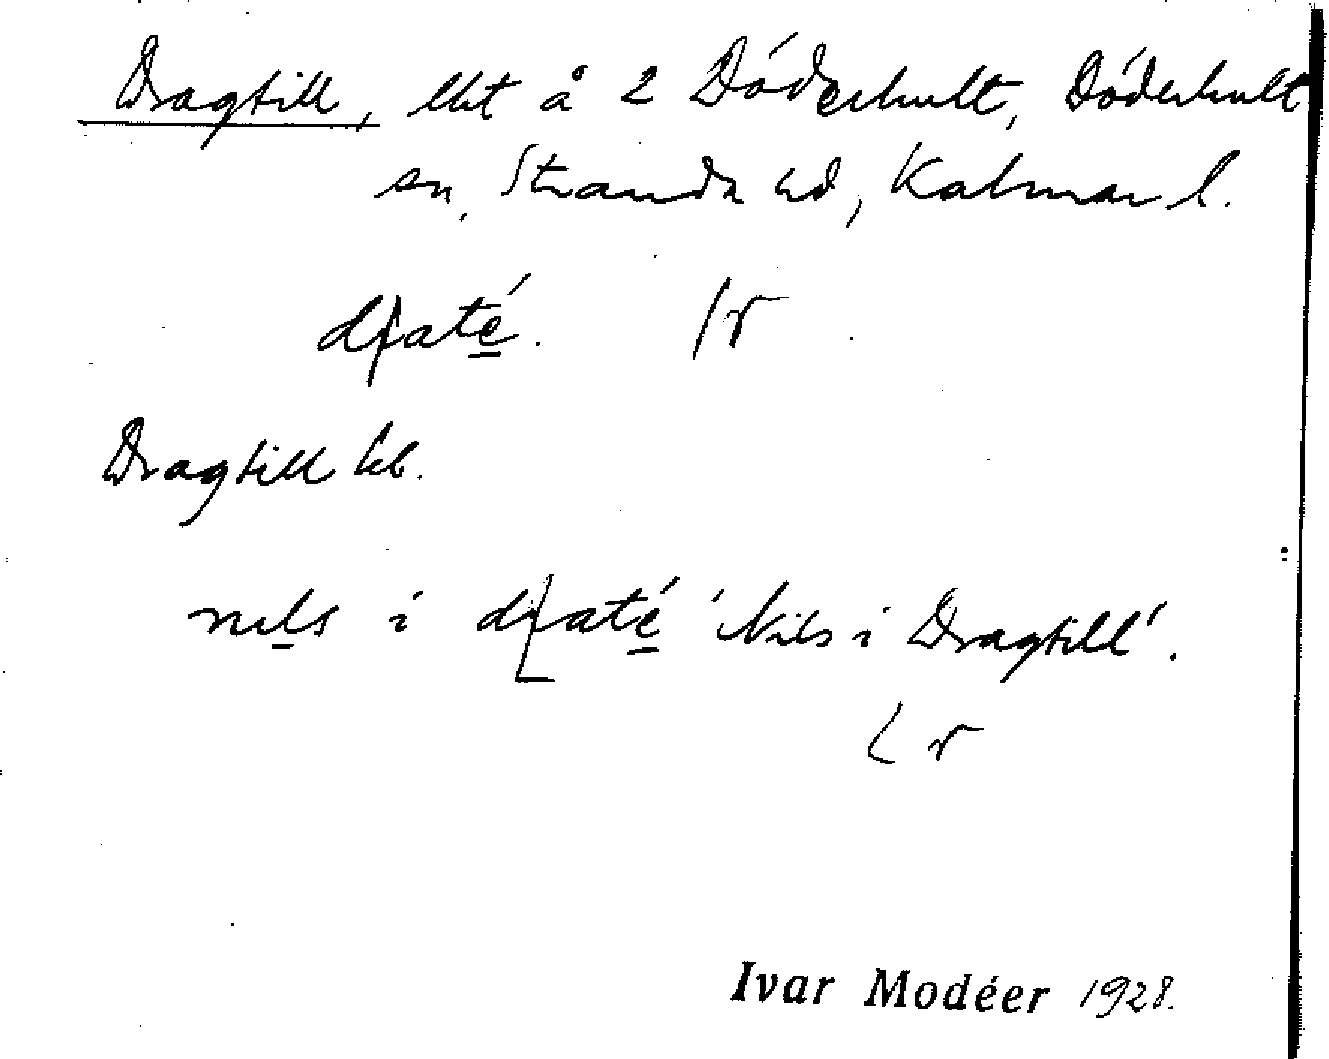 Dragtill, lht å 2 Döderhult, Döderhult
sn, Stranda hd, Kalmar l.
Dragtill kb.
nils i 'Nils i Dragtill'.
Ivar Modéer 1928.